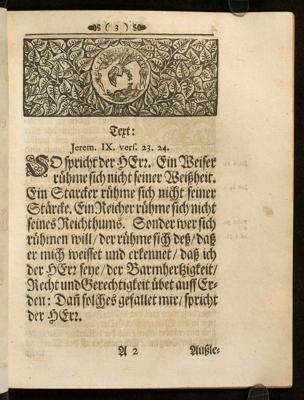 ( 3 )
Text:
Jerem. IX. vers. 23. 24.
SO spricht der HErr. Ein Weiser
rühme sich nicht seiner Weißheit.
Ein Starcker rühme sich nicht seiner
Stärcke. Ein Reicher rühme sich nicht
seines Reichthums. Sonder wer sich
rühmen will / der rühme sich deß / daß
er mich weisset und erkennet / daß ich
der HErr seye / der Barmhertzigkeit /
Recht und Gerechtigkeit übet auff Er-
den: Dañ solches gefallet mir / spricht
der HErr.
A 2
Außle-